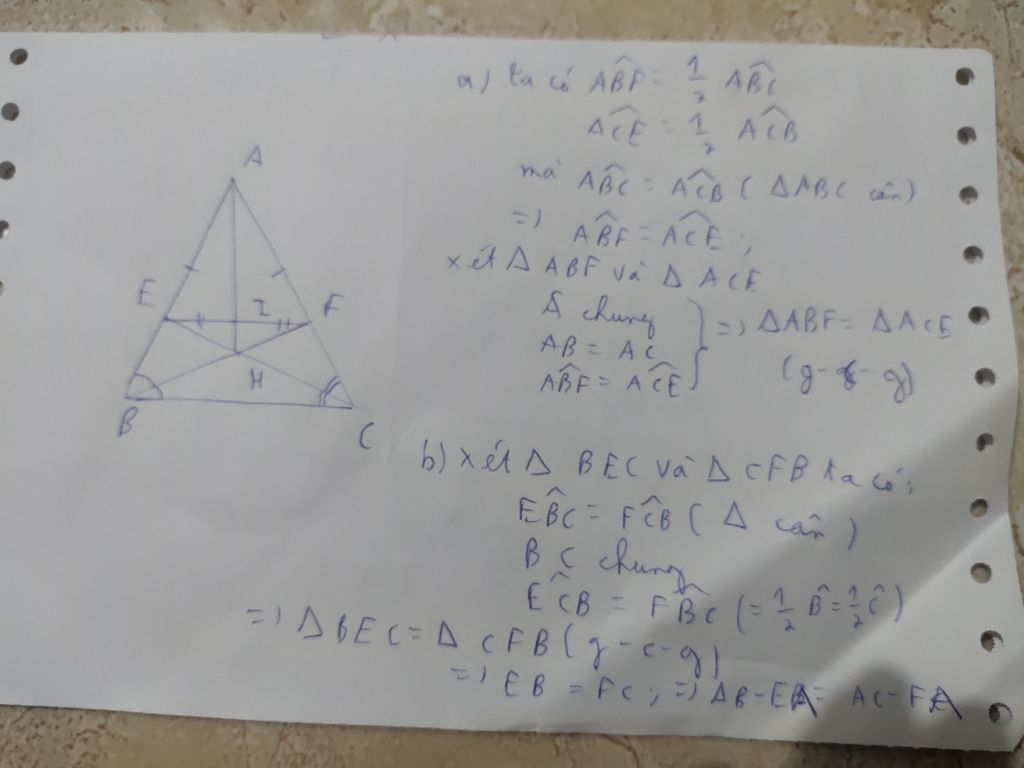 A
E
I
F
H
B
C
a) ta có AB̂F = 1/2 AB̂C
AĈE = 1/2 AĈB
mà AB̂C = AĈB ( Δ ABC cân)
=) AB̂F = AĈE ;
xét Δ ABF và Δ ACE
Â chung
AB = AC
AB̂F = AĈE
=) ΔABF = ΔACE
(g-c-g)
b) xét Δ BEC và Δ CFB ta có;
EB̂C = FĈB ( Δ cân )
BC chung
EĈB = FB̂C (= 1/2 B̂ = 1/2 Ĉ )
=) ΔBEC = Δ CFB ( g-c-g)
=) EB = FC ; =) AB-EA = AC-FA